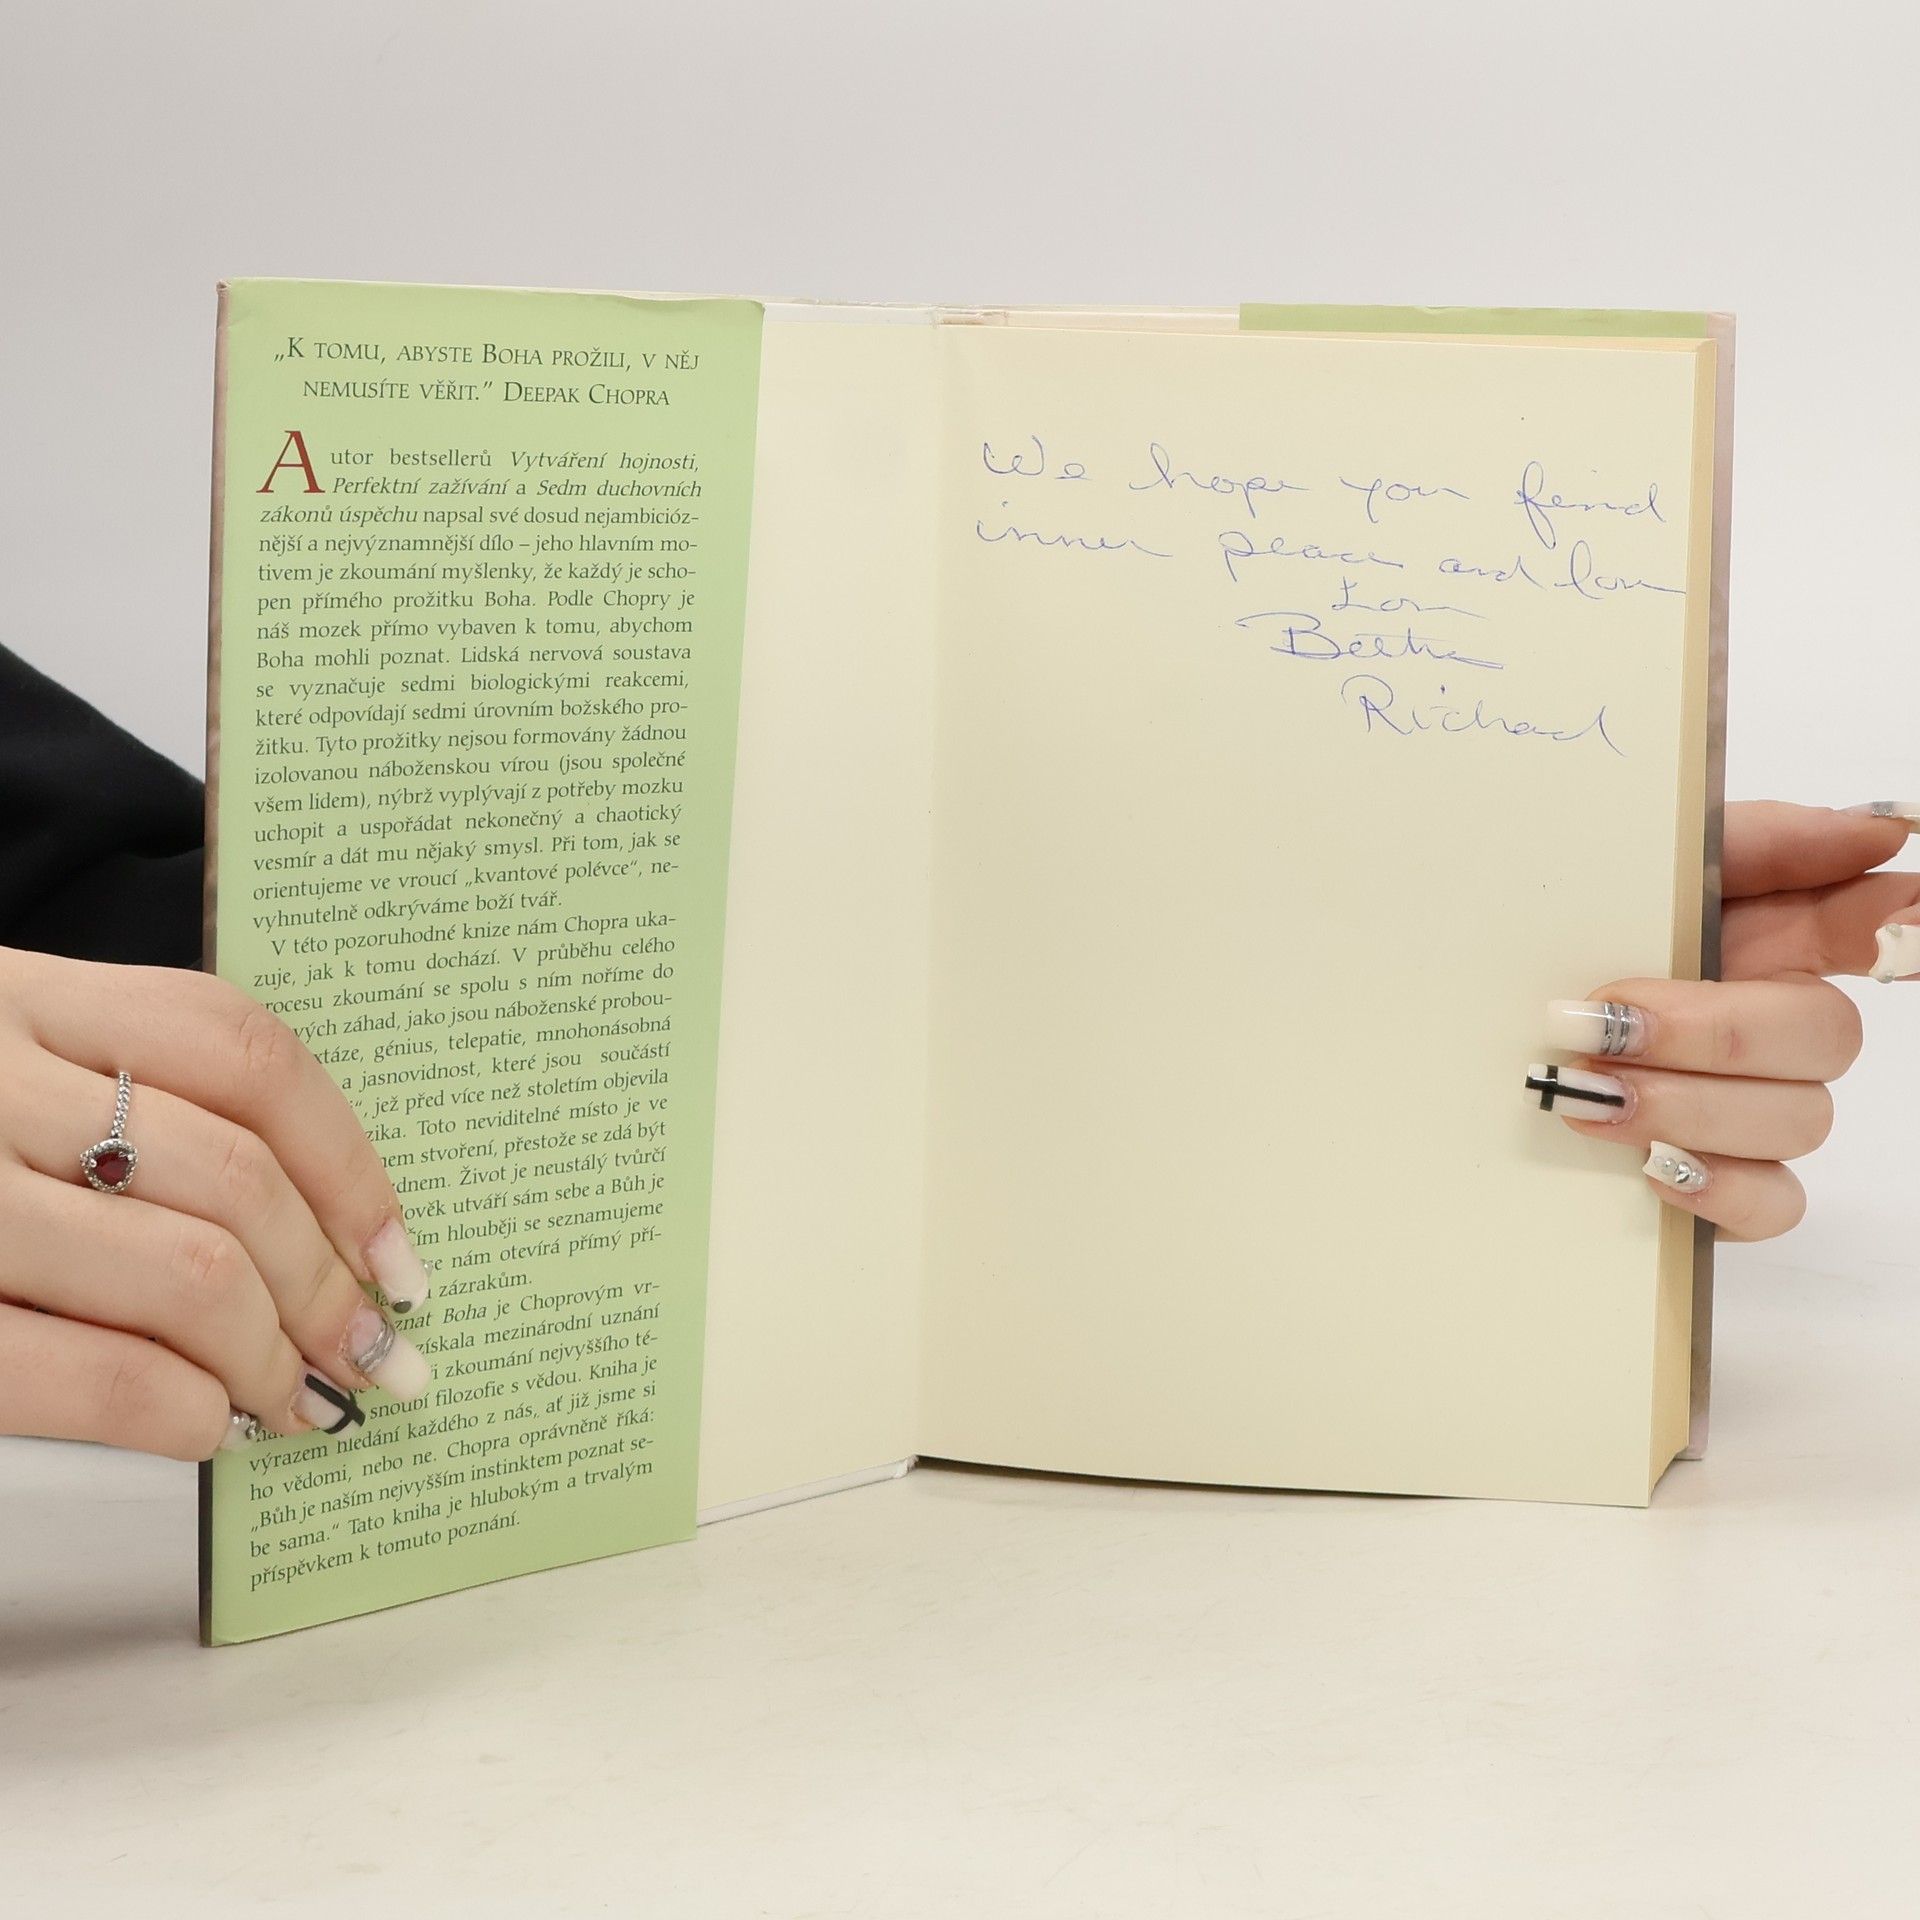 „K TOMU, ABYSTE BOHA PROŽILI, V NĚJ
NEMUSÍTE VĚŘIT.” DEEPAK CHOPRA
Autor bestsellerů Vytváření hojnosti,
Perfektní zažívání a Sedm duchovních
zákonů úspěchu napsal své dosud nejambicióz-
nější a nejvýznamnější dílo – jeho hlavním mo-
tivem je zkoumání myšlenky, že každý je scho-
pen přímého prožitku Boha. Podle Chopry je
náš mozek přímo vybaven k tomu, abychom
Boha mohli poznat. Lidská nervová soustava
se vyznačuje sedmi biologickými reakcemi,
které odpovídají sedmi úrovním božského pro-
žitku. Tyto prožitky nejsou formovány žádnou
izolovanou náboženskou vírou (jsou společné
všem lidem), nýbrž vyplývají z potřeby mozku
uchopit a uspořádat nekonečný a chaotický
vesmír a dát mu nějaký smysl. Při tom, jak se
orientujeme ve vroucí „kvantové polévce“, ne-
vyhnutelně odkrýváme boží tvář.
V této pozoruhodné knize nám Chopra uka-
zuje, jak k tomu dochází. V průběhu celého
rocesu zkoumání se spolu s ním noříme do
vých záhad, jako jsou náboženské probou-
xtáze, génius, telepatie, mnohonásobná
a jasnovidnost, které jsou součástí
“, jež před více než stoletím objevila
zika. Toto neviditelné místo je ve
nem stvoření, přestože se zdá být
dnem. Život je neustálý tvůrčí
lověk utváří sám sebe a Bůh je
čím hlouběji se seznamujeme
se nám otevírá přímý pří-
zázrakům.
znat Boha je Choprovým vr-
získala mezinárodní uznání
i zkoumání nejvyššího té-
snoubí filozofie s vědou. Kniha je
výrazem hledání každého z nás, ať již jsme si
ho vědomi, nebo ne. Chopra oprávněně říká:
„Bůh je naším nejvyšším instinktem poznat se-
be sama.“ Tato kniha je hlubokým a trvalým
příspěvkem k tomuto poznání.
We hope you find
inner peace and love
Love
Richard